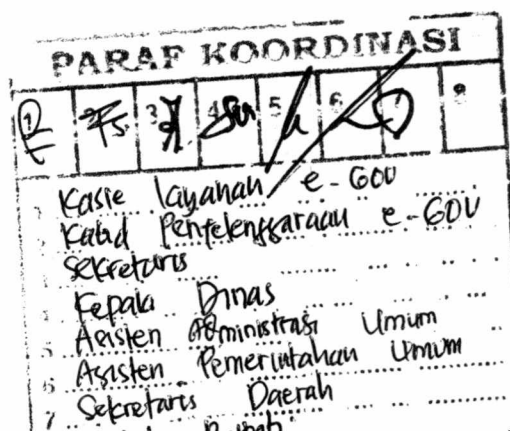 PARAF KOORDINASI
1 2 3 4 5 6 7 8
1 Kasie layanan e-GOV
2 Kabid Penyelenggaraan e-GOV
3 Sekretaris
4 Kepala Dinas
5 Asisten Administrasi Umum
6 Asisten Pemerintahan Umum
7 Sekretaris Daerah
Bupati